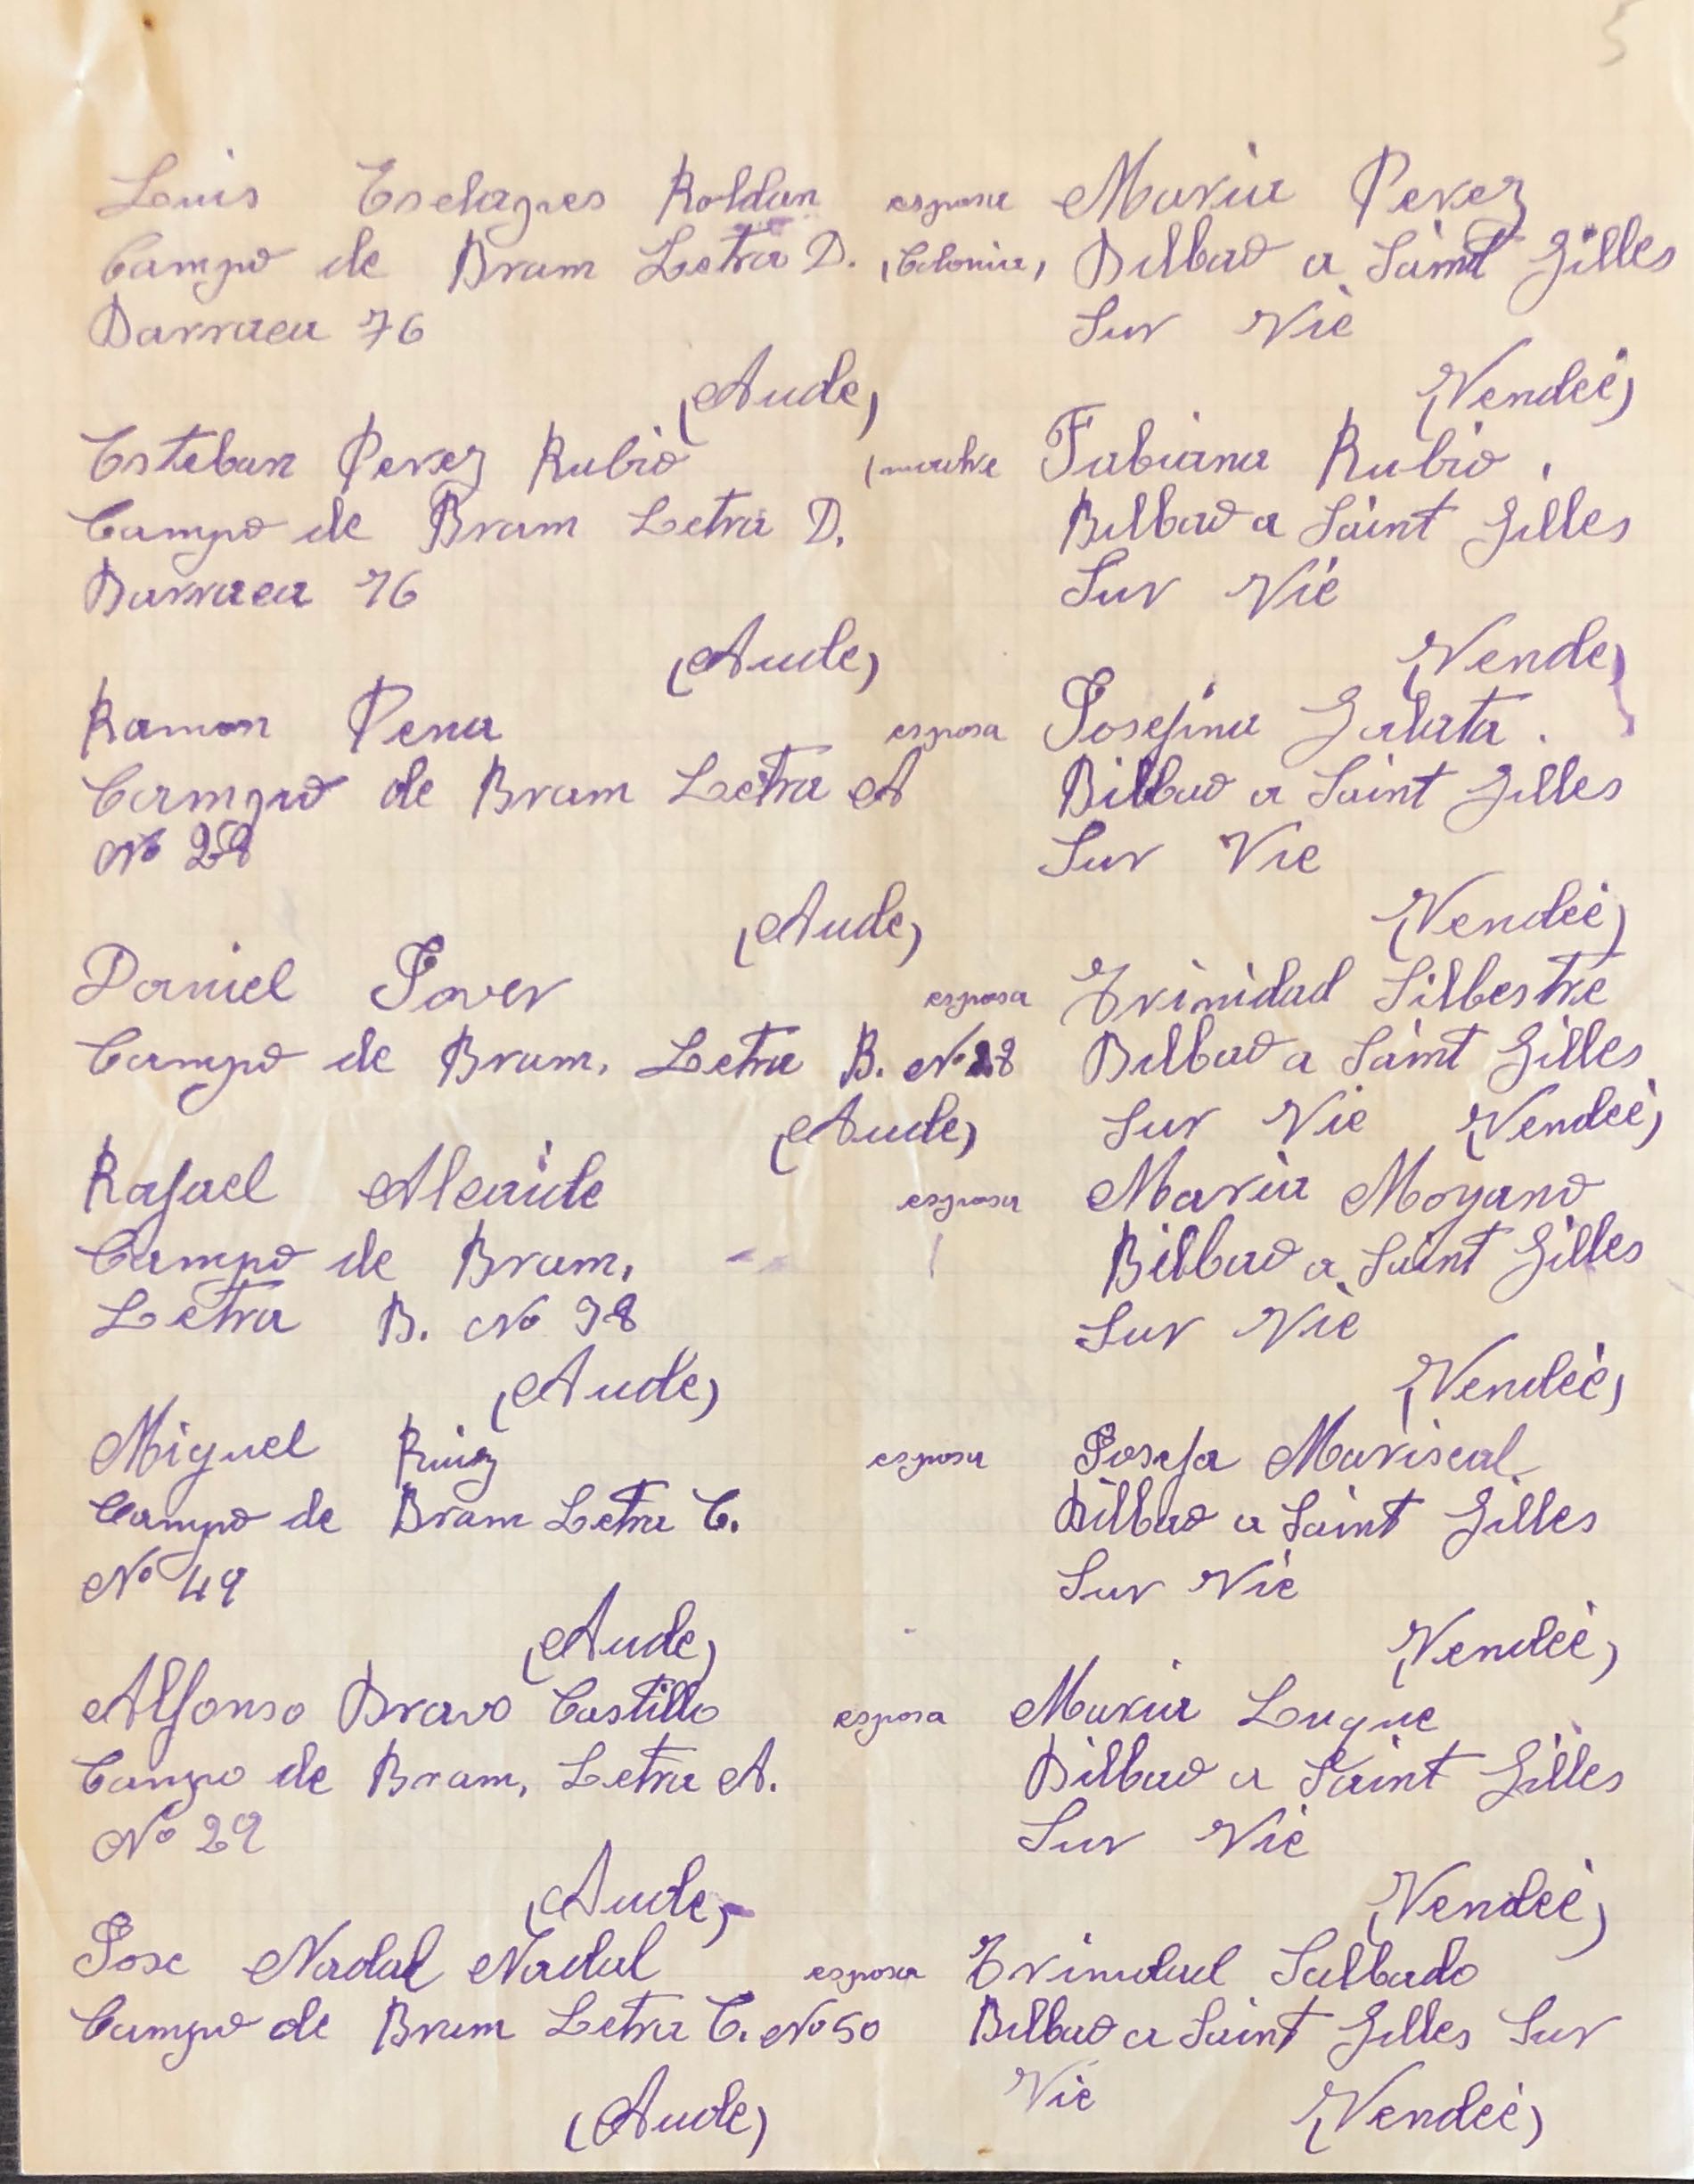 5
Luis Esclagnes Roldan esposa Maria Perez
Campo de Bram Letra D. (Colonia) Bilbao a Saint Gilles
Barraca 76 Sur Vie
(Aude) (Vendeé)
Esteban Perez Rubio (madre Fabiana Rubio.
Campo de Bram Letra D. Bilbao a Saint Gilles
Barraca 76 Sur Vie
(Aude) (Vende)
Ramon Pena esposa Josefina Galata.
Campo de Bram Letra A Bilbao a Saint Gilles
No 28 Sur Vie
(Aude) (Vendeé)
Daniel Jover esposa Trinidad Silbestre
Campo de Bram, Letra B. No 28 Bilbao a Saint Gilles
(Aude) Sur Vie (Vendeé)
Rafael Alcaide esposa Maria Moyano
Campo de Bram, Bilbao a Saint Gilles
Letra B. No 98 Sur Vie
(Aude) (Vendeé)
Miguel Ruiz esposa Josefa Mariscal
Campo de Bram Letra C. Bilbao a Saint Gilles
No 49 Sur Vie
(Aude) (Vendeé)
Alfonso Bravo Castillo esposa Maria Luque
Campo de Bram, Letra A. Bilbao a Saint Gilles
No 29 Sur Vie
(Aude) (Vendeé)
Jose Nadal Nadal esposa Trinidad Salbado
Campo de Bram Letra C. No 50 Bilbao a Saint Gilles Sur
Vie
(Aude) (Vendeé)